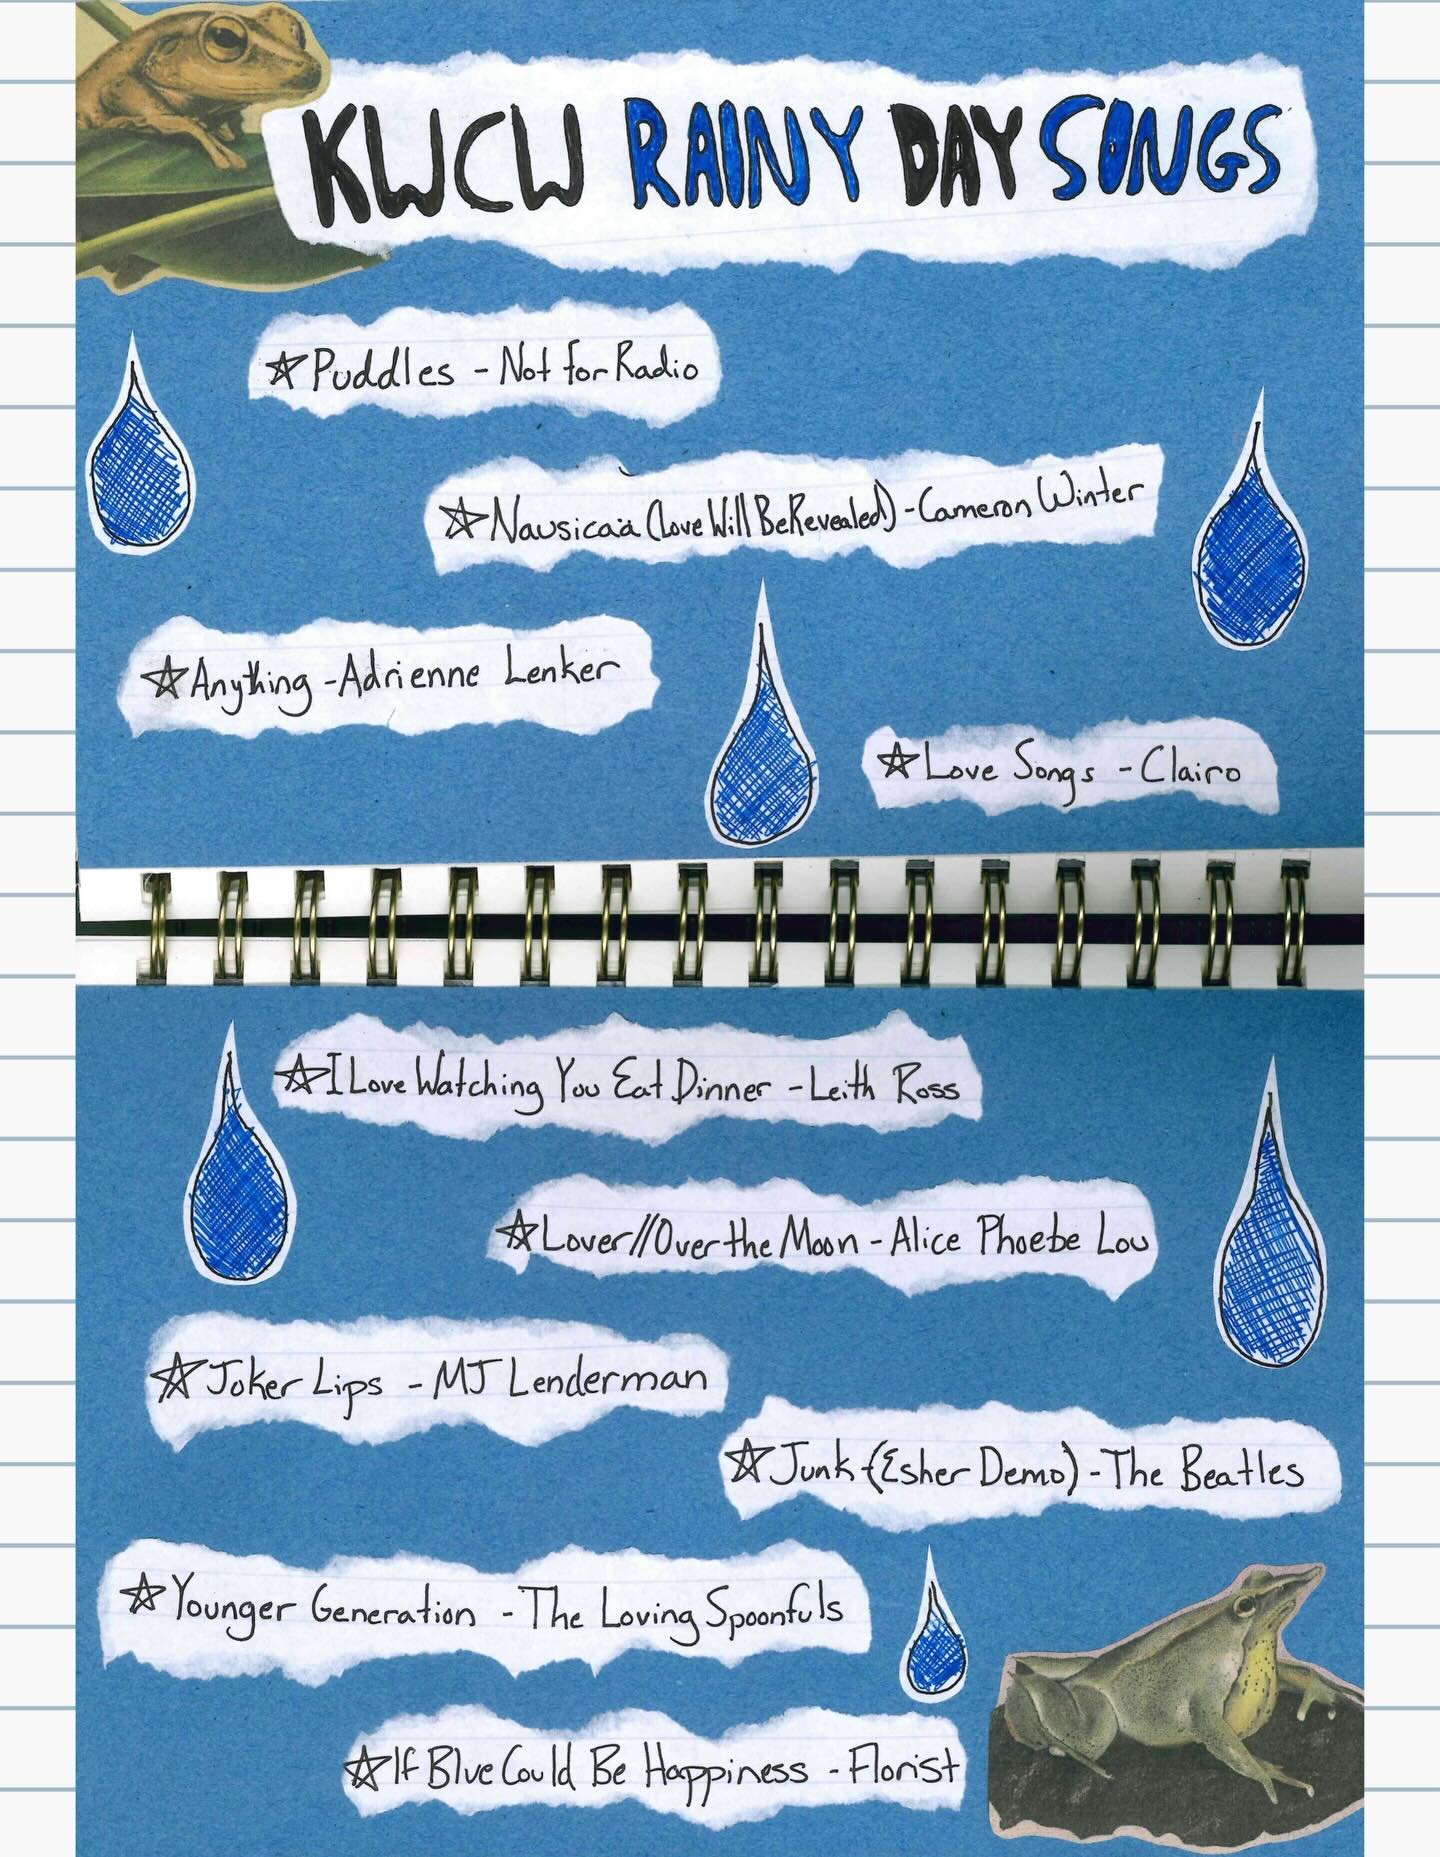 KWCW RAINY DAY SONGS
☆Puddles - Not for Radio
☆Nausicaä (Love Will Be Revealed) - Cameron Winter
☆Anything - Adrienne Lenker
☆Love Songs - Clairo
☆I Love Watching You Eat Dinner - Leith Ross
☆Lover//Over the Moon - Alice Phoebe Lou
☆Joker Lips - MJ Lenderman
☆Junk - (Esher Demo) - The Beatles
☆Younger Generation - The Loving Spoonfuls
☆If Blue Could Be Happiness - Florist